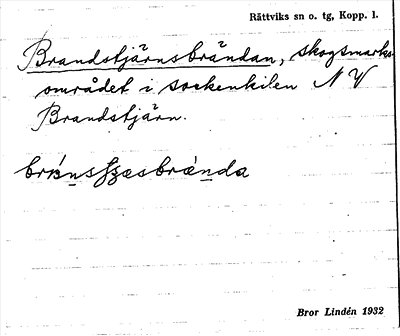 Rättviks sn o. tg, Kopp. l.
Brandstjärnsbrändan, skogsmarks-
området i sockenkilen N V
Brandstjärn.
Bror Lindén 1932